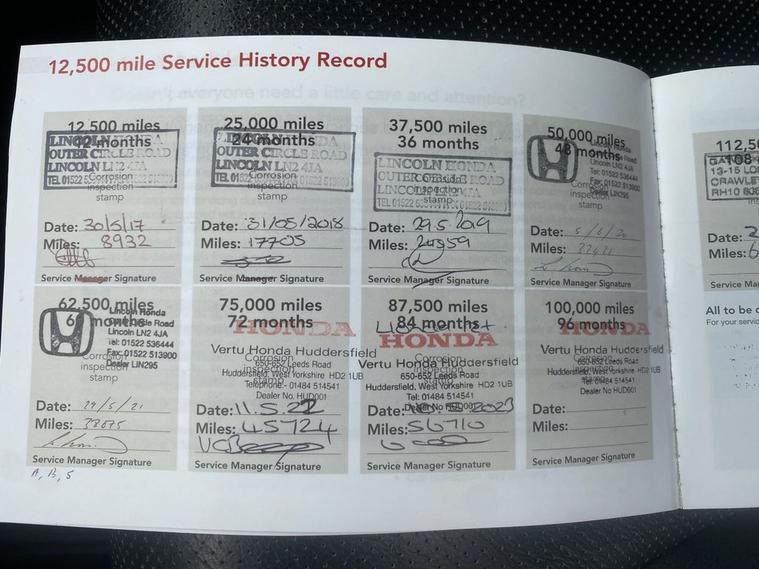 12,500 mile Service History Record
12,500 miles
12 months
LINCOLN HONDA
OUTER CIRCLE ROAD
LINCOLN LN2 4JA
Corrosion
inspection
stamp
Date: 30/5/17
Miles: 8932
Service Manager Signature
25,000 miles
24 months
LINCOLN HONDA
OUTER CIRCLE ROAD
LINCOLN LN2 4JA
Corrosion
inspection
stamp
Date: 31/05/2018
Miles: 17705
Service Manager Signature
37,500 miles
36 months
LINCOLN HONDA
OUTER CIRCLE ROAD
LINCOLN LN2 4JA
Corrosion
inspection
stamp
Date: 29.5.2019
Miles: 24959
Service Manager Signature
50,000 miles
48 months
Lincoln Honda
Outer Circle Road
Lincoln LN2 4JA
Tel: 01522 536444
Fax: 01522 513900
Dealer LIN295
Date: 5/6/20
Miles:
Service Manager Signature
62,500 miles
60 months
Lincoln Honda
Outer Circle Road
Lincoln LN2 4JA
Tel: 01522 536444
Fax: 01522 513900
Dealer LIN295
Corrosion
inspection
stamp
Date: 29/5/21
Miles: 38075
Service Manager Signature
A, B, S
75,000 miles
72 months
HONDA
Vertu Honda Huddersfield
650-652 Leeds Road
Huddersfield, West Yorkshire HD2 1UB
Telephone:- 01484 514541
Dealer No HUD001
Date: 11.5.22
Miles: 45724
Service Manager Signature
87,500 miles
84 months
HONDA
Vertu Honda Huddersfield
650-652 Leeds Road
Huddersfield, West Yorkshire HD2 1UB
Tel: 01484 514541
Dealer No HUD001
Date: 2023
Miles: 56710
Service Manager Signature
100,000 miles
96 months
HONDA
Vertu Honda Huddersfield
650-652 Leeds Road
Huddersfield, West Yorkshire HD2 1UB
Tel: 01484 514541
Dealer No HUD001
Date:
Miles:
Service Manager Signature
112,5
108
13-15 LO
CRAWLE
RH10
Date: 2
Miles: 6
Service Man
All to be c
For your servic